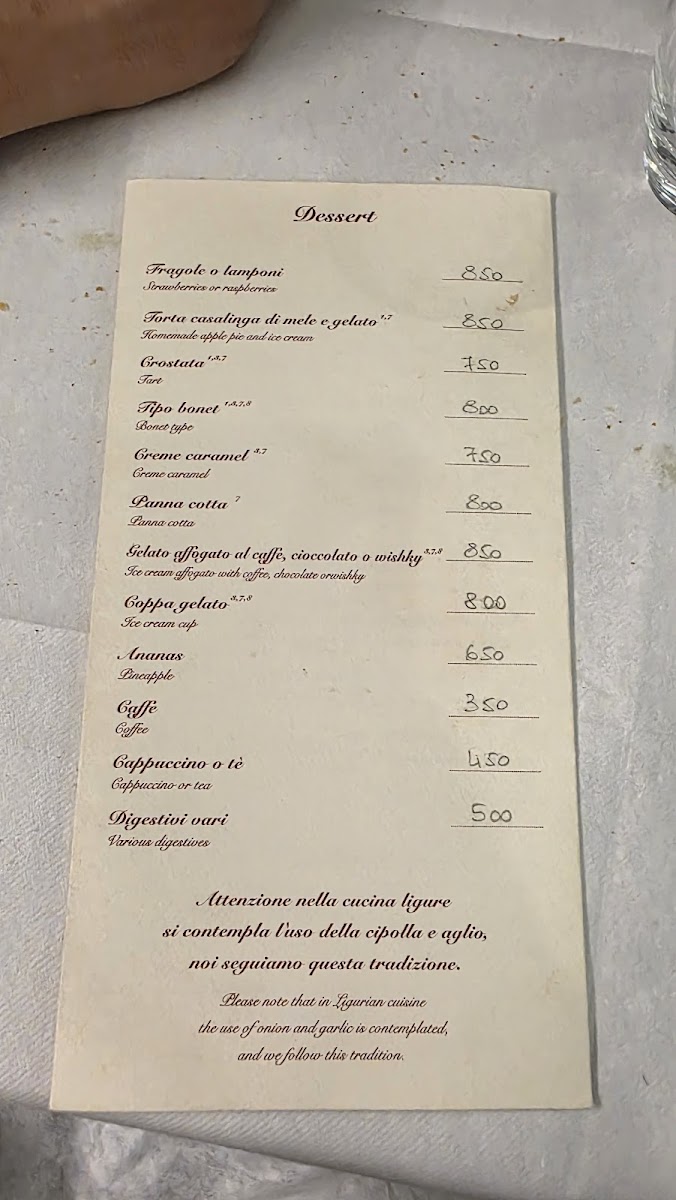 Dessert
Fragole o lamponi 850
Strawberries or raspberries
Torta casalinga di mele e gelato 1,7 850
Homemade apple pie and ice cream
Crostata 1,3,7 750
Tart
Tipo bonet 1,3,7,8 800
Bonet type
Creme caramel 3,7 750
Creme caramel
Panna cotta 7 800
Panna cotta
Gelato affogato al caffè, cioccolato o wishky 3,7,8 850
Ice cream affogato with coffee, chocolate orwishky
Coppa gelato 3,7,8 800
Ice cream cup
Ananas 650
Pineapple
Caffè 350
Coffee
Cappuccino o tè 450
Cappuccino or tea
Digestivi vari 500
Various digestives
Attenzione nella cucina ligure
si contempla l'uso della cipolla e aglio,
noi seguiamo questa tradizione.
Please note that in Ligurian cuisine
the use of onion and garlic is contemplated,
and we follow this tradition.